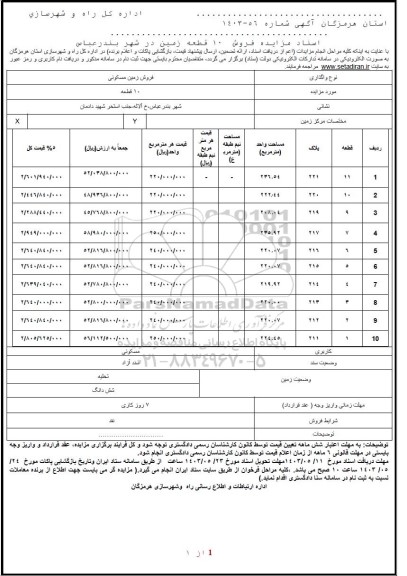 اداره کل راه و شهرسازی استان هرمزگان آگهی شماره ۵۶-۱۴۰۳
اسناد مزایده فروش ۱۰ قطعه زمین در شهر بندرعباس
با عنایت به اینکه کلیه مراحل انجام مزایدات (اعم از دریافت اسناد، ارائه تضمین، ارسال پیشنهاد قیمت، بازگشایی پاکات و اعلام برنده) در اداره کل راه و شهرسازی استان هرمزگان
به صورت الکترونیکی در سامانه تدارکات الکترونیکی دولت (ستاد) برگزار می گردد، متقاضیان محترم بایستی جهت ثبت نام در سامانه مذکور و دریافت نام کاربری و رمز عبور
به سایت www.setadiran.ir مراجعه فرمایند.
نوع واگذاری فروش زمین مسکونی
مورد مزایده ۱۰ قطعه
نشانی شهر بندرعباس،خ آلاله،جنب استخر شهید دادمان
مختصات مرکز زمین Y X
ردیف قطعه پلاک مساحت واحد (مترمربع) مساحت نیم طبقه (مترمربع) قیمت هر متر مربع نیم طبقه (ریال) قیمت هر مترمربع واحد(ریال) جمعاً به ارزش(ریال) ۵% قیمت کل
1 ۱۱ ۲۲۱ ۲۳۶.۵۴ - - ۲۲۰/۰۰۰/۰۰۰ ۵۲/۰۳۸/۸۰۰/۰۰۰ ۲/۶۰۱/۹۴۰/۰۰۰
2 ۱۰ ۲۲۰ ۲۲۲.۴۴ ۲۲۰/۰۰۰/۰۰۰ ۴۸/۹۳۶/۸۰۰/۰۰۰ ۲/۴۴۶/۸۴۰/۰۰۰
3 ۹ ۲۱۹ ۲۰۸.۰۴ ۲۲۰/۰۰۰/۰۰۰ ۴۵/۷۶۸/۸۰۰/۰۰۰ ۲/۲۸۸/۴۴۰/۰۰۰
4 ۷ ۲۱۷ ۲۳۵.۹۲ ۲۵۰/۰۰۰/۰۰۰ ۵۸/۹۸۰/۰۰۰/۰۰۰ ۲/۹۴۹/۰۰۰/۰۰۰
5 ۶ ۲۱۶ ۲۲۰.۰۷ ۲۴۰/۰۰۰/۰۰۰ ۵۲/۸۱۶/۸۰۰/۰۰۰ ۲/۶۴۰/۸۴۰/۰۰۰
6 ۵ ۲۱۵ ۲۲۰.۰۷ ۲۴۰/۰۰۰/۰۰۰ ۵۲/۸۱۶/۸۰۰/۰۰۰ ۲/۶۴۰/۸۴۰/۰۰۰
7 ۴ ۲۱۴ ۲۱۹.۹۲ ۲۴۰/۰۰۰/۰۰۰ ۵۲/۷۸۰/۸۰۰/۰۰۰ ۲/۶۳۹/۰۴۰/۰۰۰
8 ۳ ۲۱۳ ۲۲۰.۰۰ ۲۴۰/۰۰۰/۰۰۰ ۵۲/۸۰۰/۰۰۰/۰۰۰ ۲/۶۴۰/۰۰۰/۰۰۰
9 ۲ ۲۱۲ ۲۲۰.۰۷ ۲۴۰/۰۰۰/۰۰۰ ۵۲/۸۱۶/۸۰۰/۰۰۰ ۲/۶۴۰/۸۴۰/۰۰۰
10 ۱ ۲۱۱ ۲۲۴.۴۵ ۲۵۰/۰۰۰/۰۰۰ ۵۶/۱۱۲/۵۰۰/۰۰۰ ۲/۸۰۵/۶۲۵/۰۰۰
ParsNamadData
۰۲۱-۸۸۳۴۹۶۷۰-۵
کاربری مسکونی
وضعیت سند سند آزاد
وضعیت زمین تخلیه
شش دانگ
مهلت زمانی واریز وجه ( عقد قرارداد) ۷ روز کاری
شرایط فروش نقد
توضیحات
توضیحات: به مهلت اعتبار شش ماهه تعیین قیمت توسط کانون کارشناسان رسمی دادگستری توجه شود و کل فرآیند برگزاری مزایده، عقد قرارداد و واریز وجه
بایستی در مهلت قانونی ۶ ماهه از زمان اعلام قیمت توسط کانون کارشناسان رسمی دادگستری انجام شود.
مهلت دریافت اسناد مورخ ۱۱/ ۰۵/۱۴۰۳ مهلت تحویل اسناد مورخ ۲۳/ ۰۵/۱۴۰۳ ساعت از طریق سامانه ستاد ایران وتاریخ بازگشایی پاکات مورخ ۲۴/
۰۵/ ۱۴۰۳ ساعت ۱۰ صبح می باشد .کلیه مراحل فرآخوان از طریق سایت ستاد ایران انجام می گیرد.( مزایده گر می بایست جهت اطلاع از برنده معاملات
نسبت به ثبت نام در سامانه سنا دادگستری اقدام نماید)
اداره ارتباطات و اطلاع رسانی راه وشهرسازی هرمزگان
1 از ۱